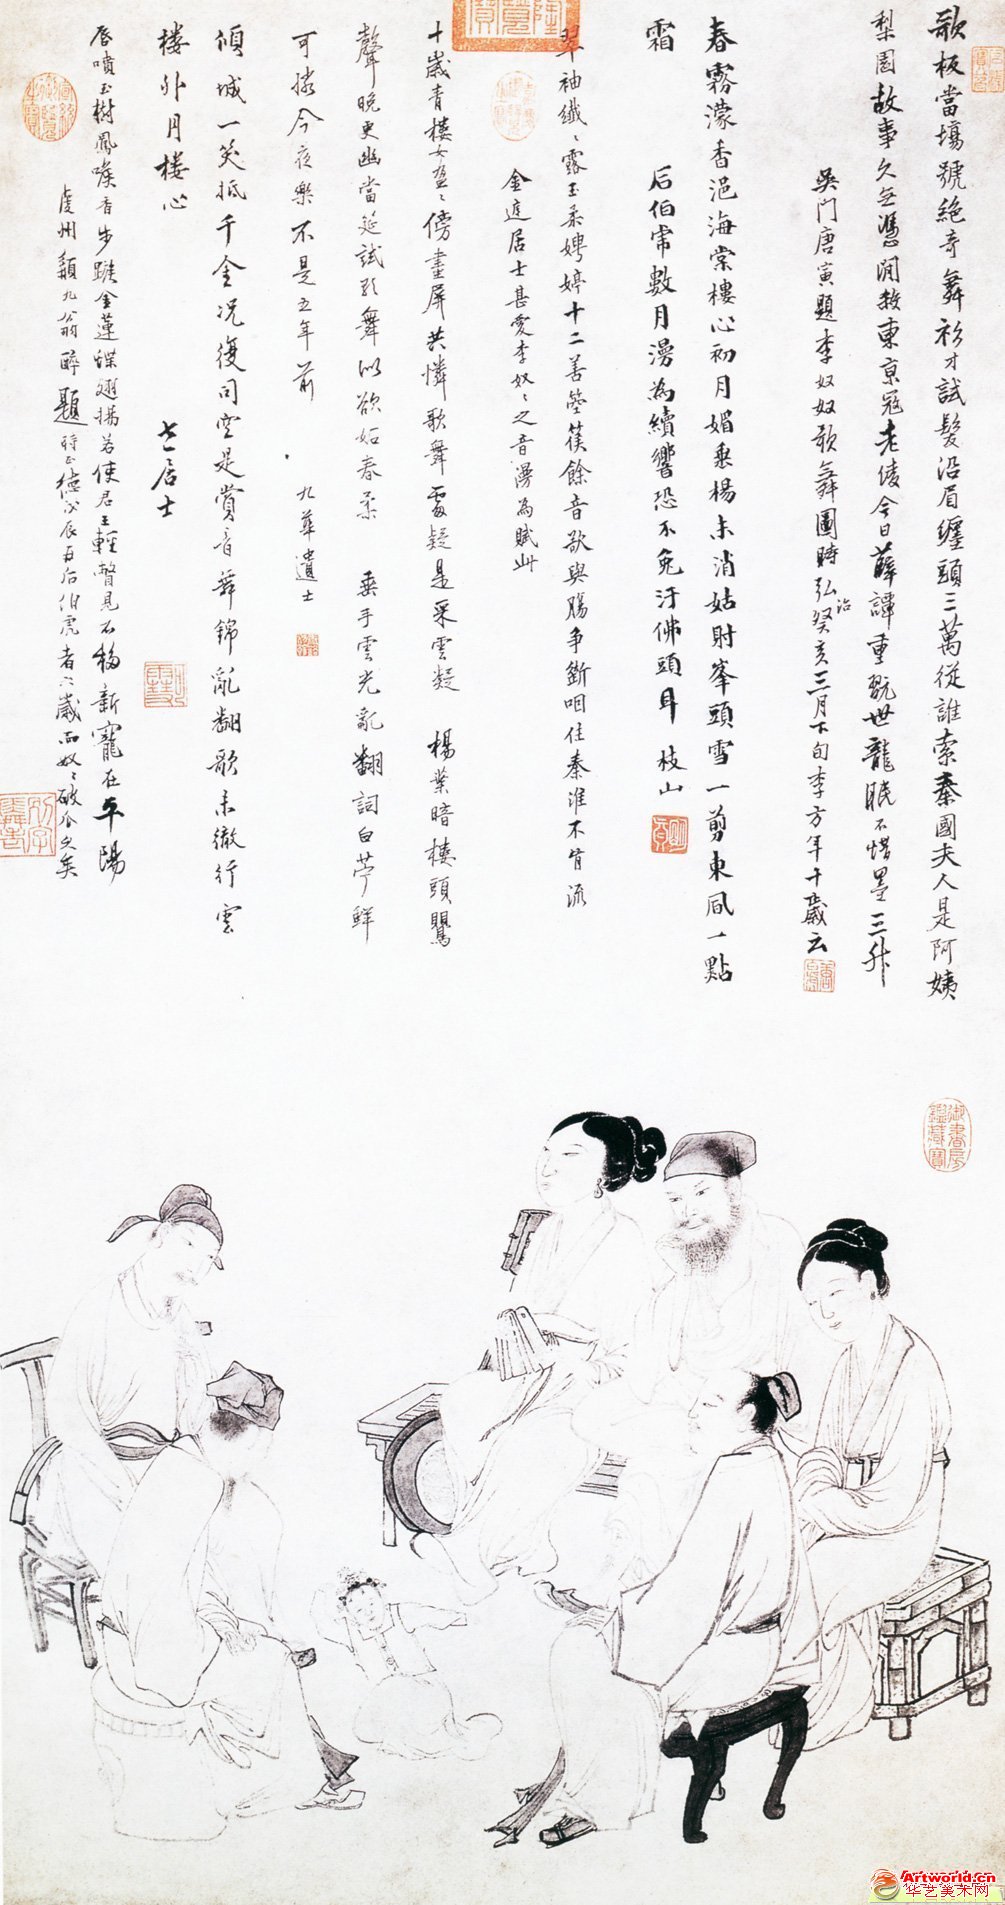 歌板當塲號絕奇舞衫才試髮沿眉纏頭三萬從誰索秦國夫人是阿姨
梨園故事久無憑閒教東京寇老今日薛譚重玩世龍眠不惜墨三升
吳門唐寅題李奴奴歌舞圖時弘治癸亥三月下旬李方年十歲云
春霧濛香浥海棠樓心初月媚垂楊未消姑射峯頭雪一剪東風一點
霜 后伯常數月漫為續響恐不免汙佛頭耳 枝山
翠袖纖〻露玉柔娉婷十二善箜篌餘音欲與腸爭斷咽住秦淮不肯流
金庭居士甚愛李奴〻之音漫為賦此
十歲青樓女盈〻傍畫屏共憐歌舞處疑是采雲凝 楊葉暗樓頭鶯
聲晚更幽當筵試歌舞似欲妬春柔 垂手雲光亂翻詞白苧鮮
可今夜樂不是五年前 九華遺士
傾城一笑抵千金況復司空是賞音舞錦亂翻歌未徹行雲
樓外月樓心 居士
唇噴玉樹鳳喉香步蹴金蓮蝶翅揚若使君王輕瞥見不移新寵在平陽
虔州九翁醉題時正德戊辰五后伯虎者六歲而奴〻破瓜久矣
御書房鑑藏寶
Artworld.cn
华艺美术网